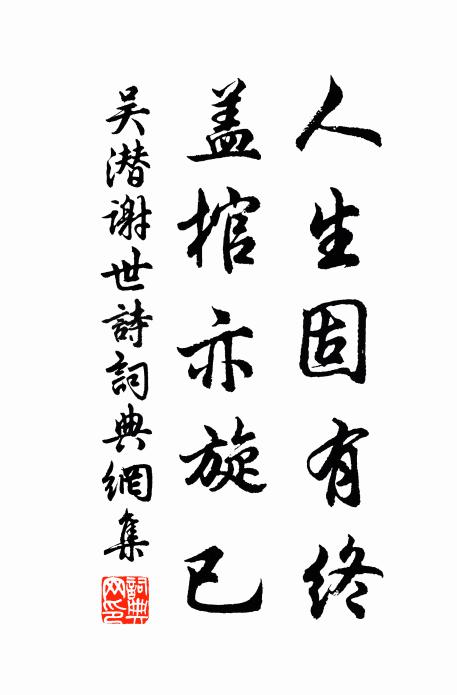 人生固有终
盖棺亦旋已
吴潜谢世詩詞典網集
詞典網印